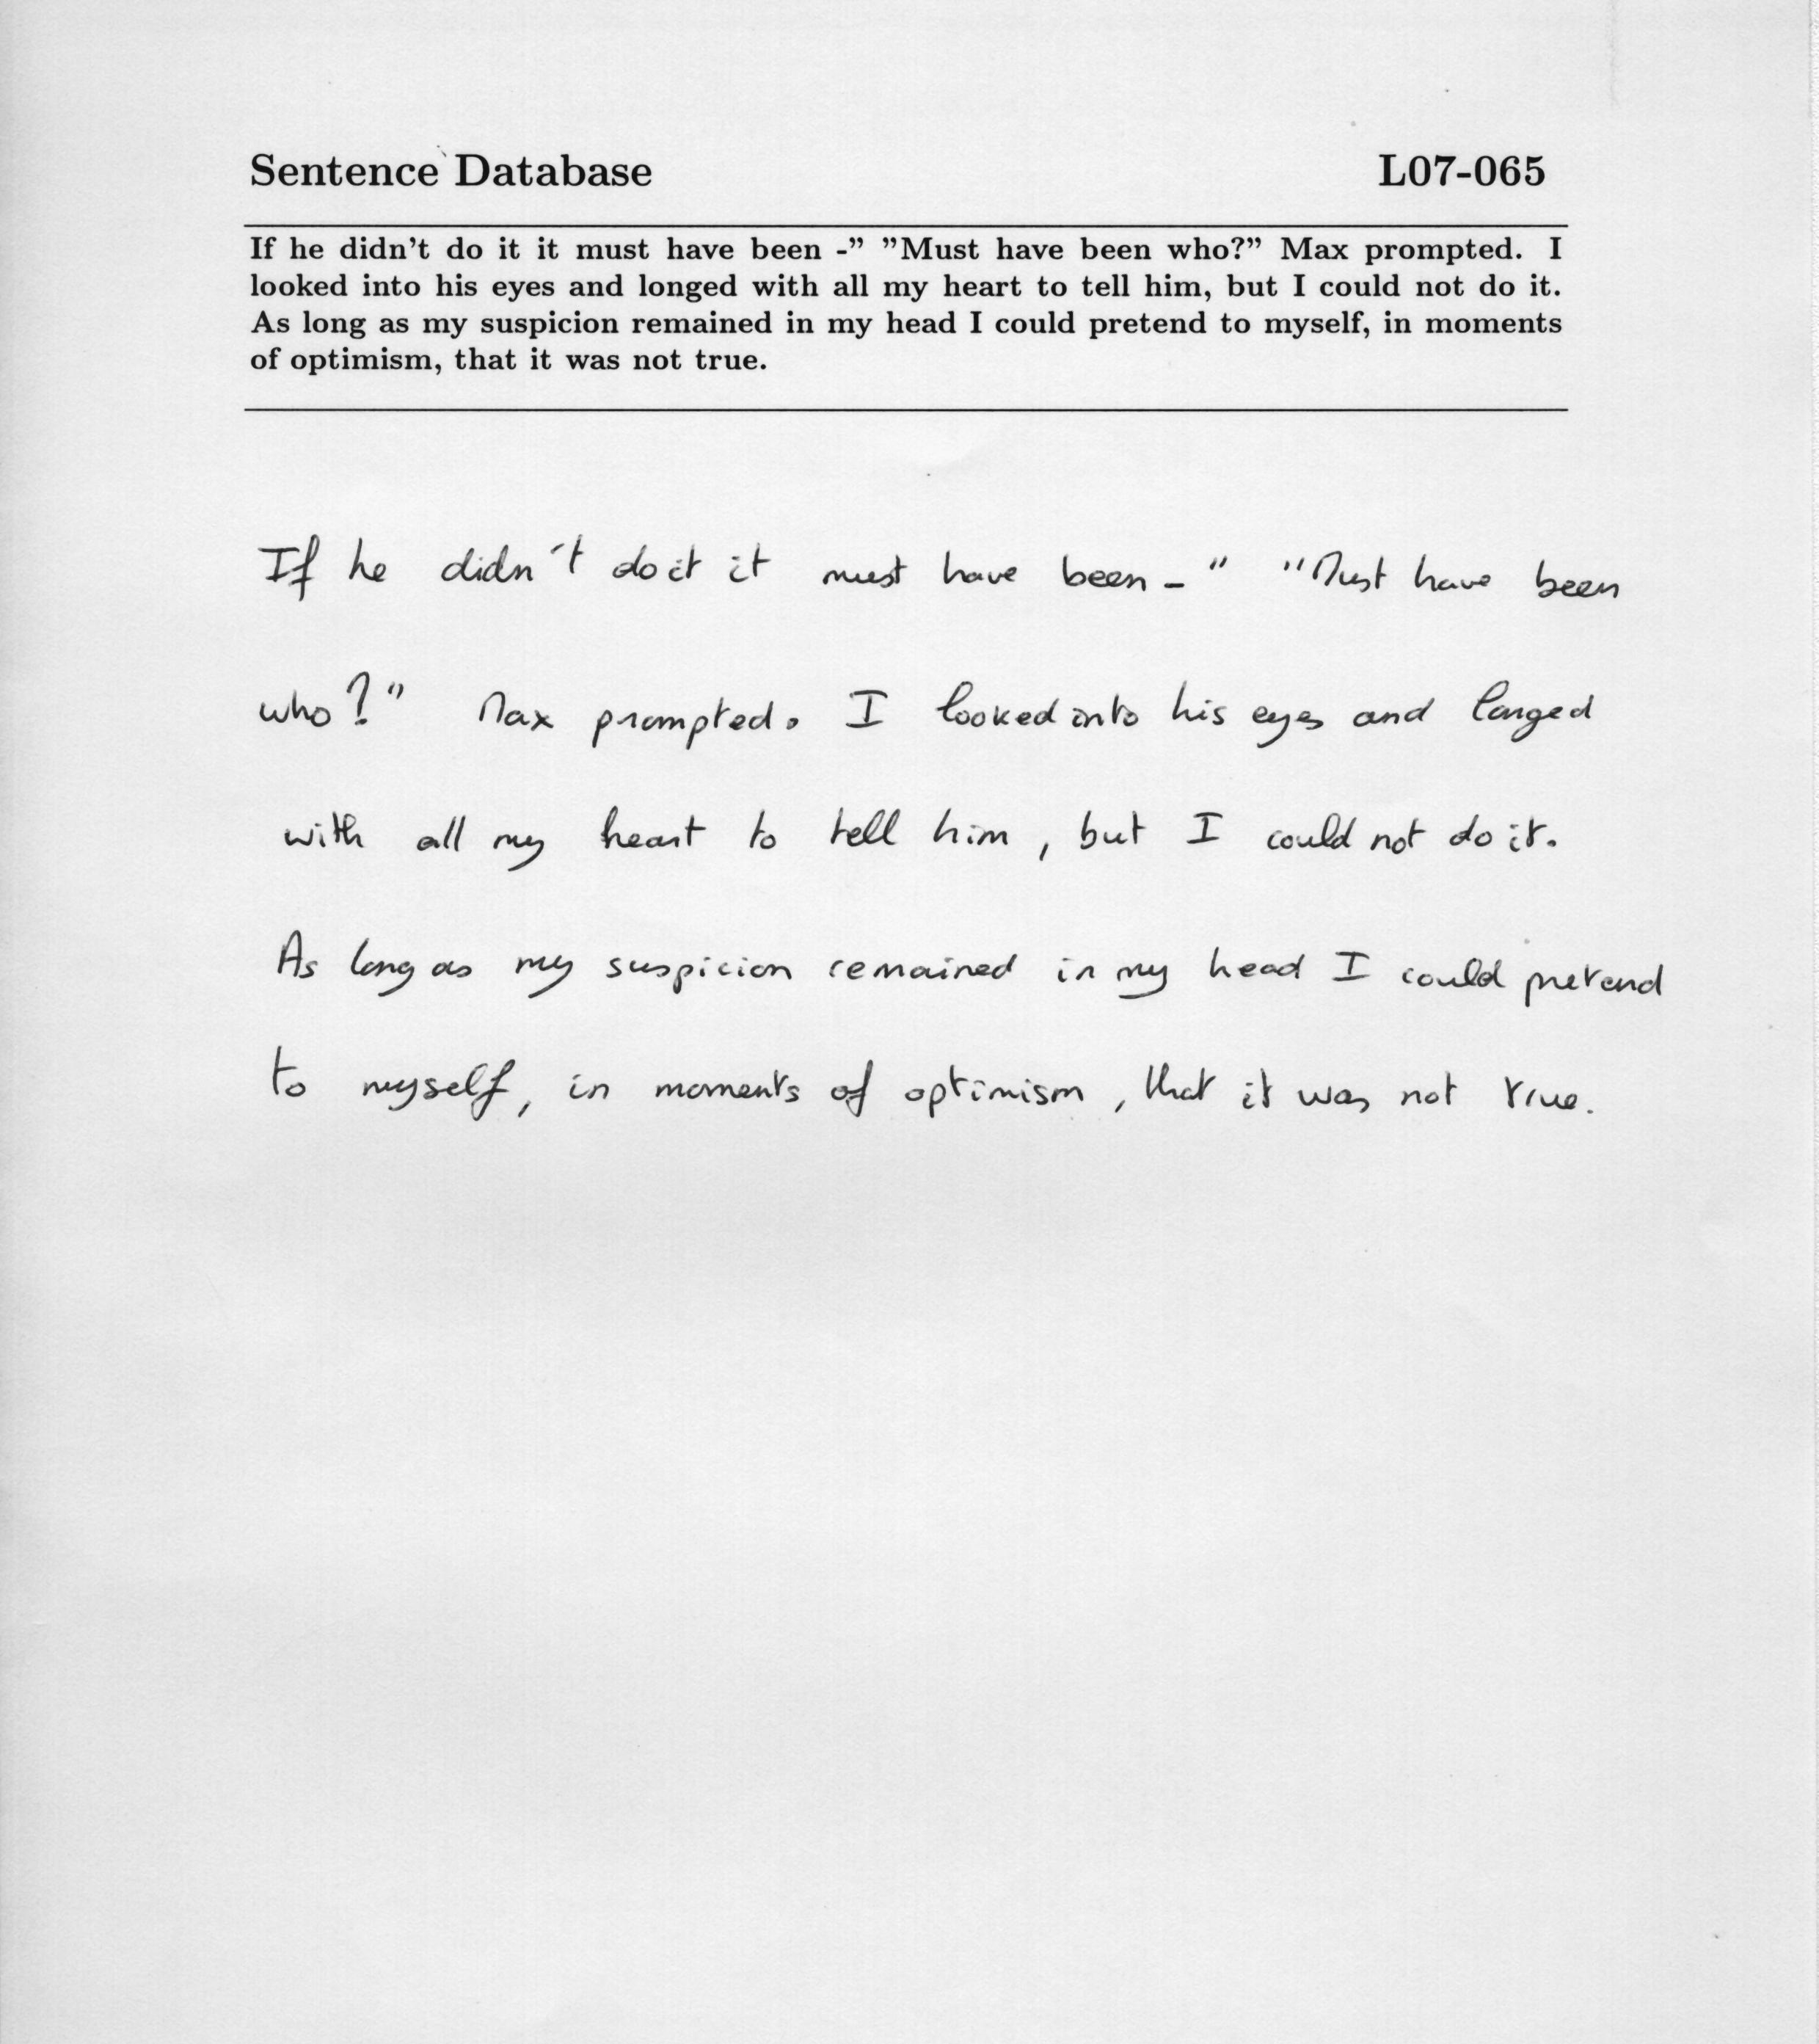 Sentence Database L07-065
If he didn't do it it must have been -" "Must have been who?" Max prompted. I
looked into his eyes and longed with all my heart to tell him, but I could not do it.
As long as my suspicion remained in my head I could pretend to myself, in moments
of optimism, that it was not true.
If he didn't do it it must have been -" "Must have been
who?" Max prompted. I looked into his eyes and longed
with all my heart to tell him, but I could not do it.
As long as my suspicion remained in my head I could pretend
to myself, in moments of optimism, that it was not true.